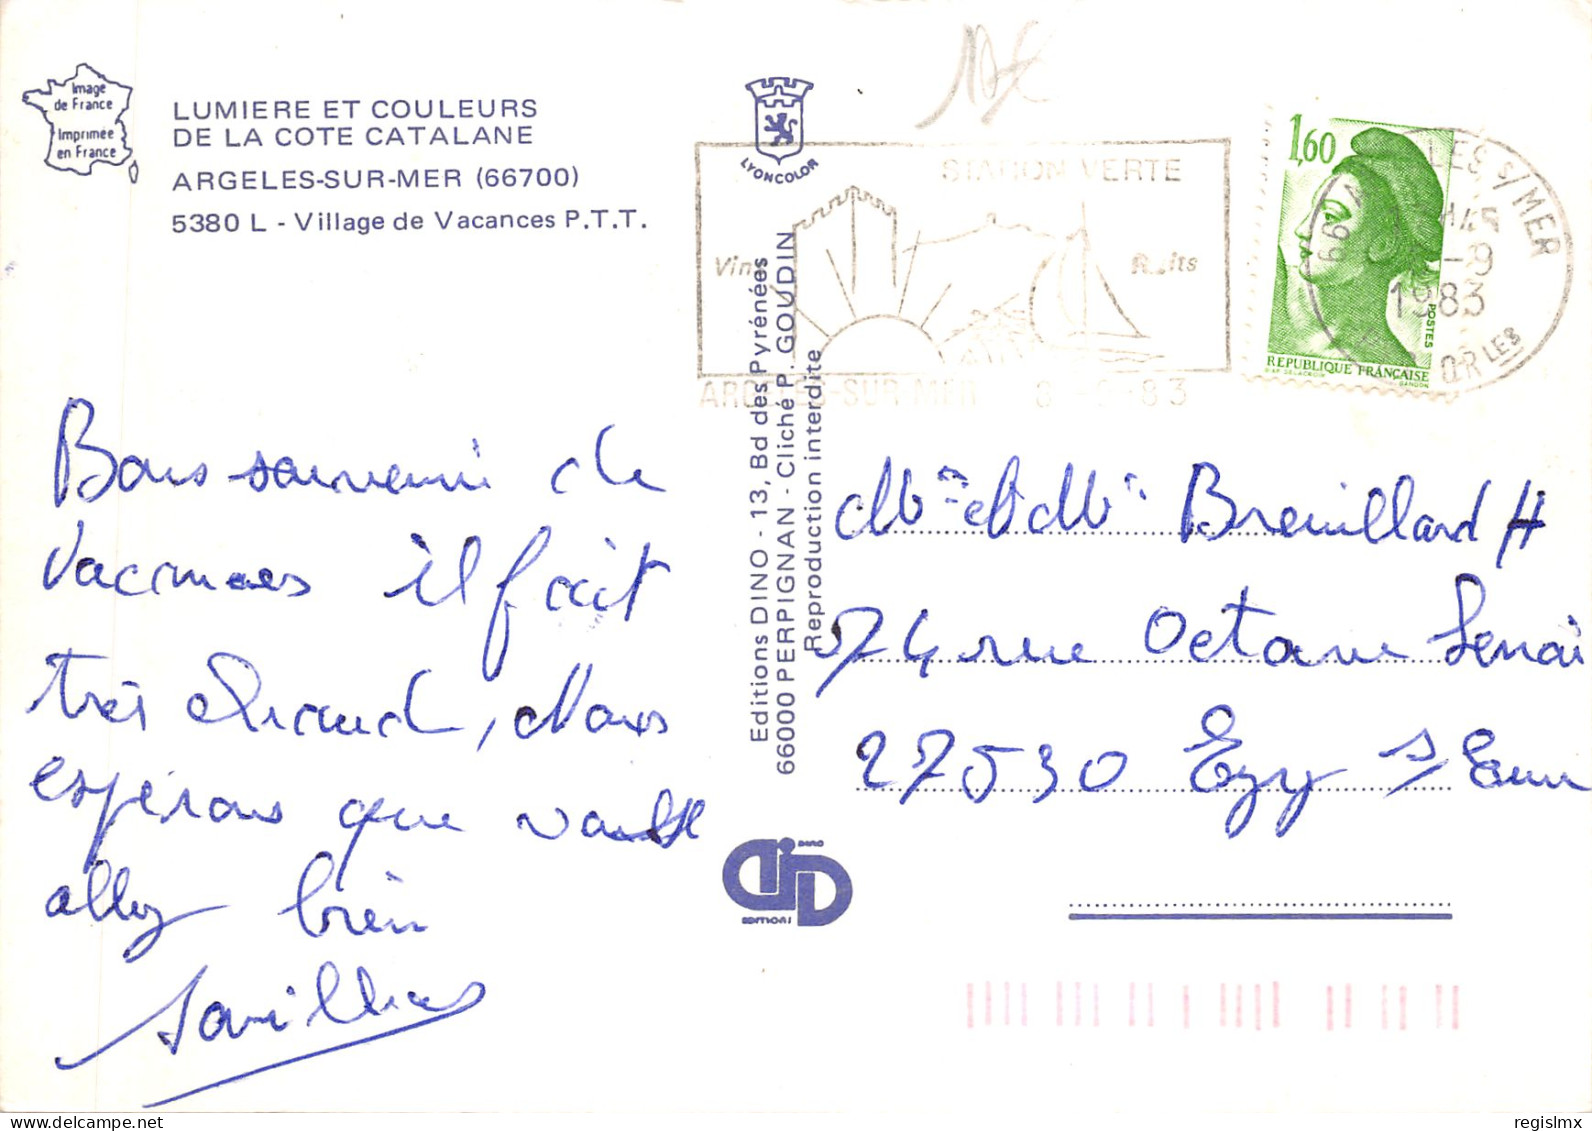 Image
de France
Imprimée
en France
LUMIERE ET COULEURS
DE LA COTE CATALANE
ARGELES-SUR-MER (66700)
5380 L - Village de Vacances P.T.T.
LYONCOLOR
STATION VERTE
ARGELES-SUR MER
1,60
POSTES
REPUBLIQUE FRANÇAISE
GANDON
LES S/MER
66
-9
1983
Bons souvenir de
Vacances il fait
très chaud, Nous
espérons que vous
allez bien
Editions DINO - 13, Bd des Pyrénées
66000 PERPIGNAN - Cliché P. GOUDIN
Reproduction interdite
DINO
EDITIONS
Breuillard H
74 rue Octave Lenoi
27530 Ezy s/Eure
regislmx